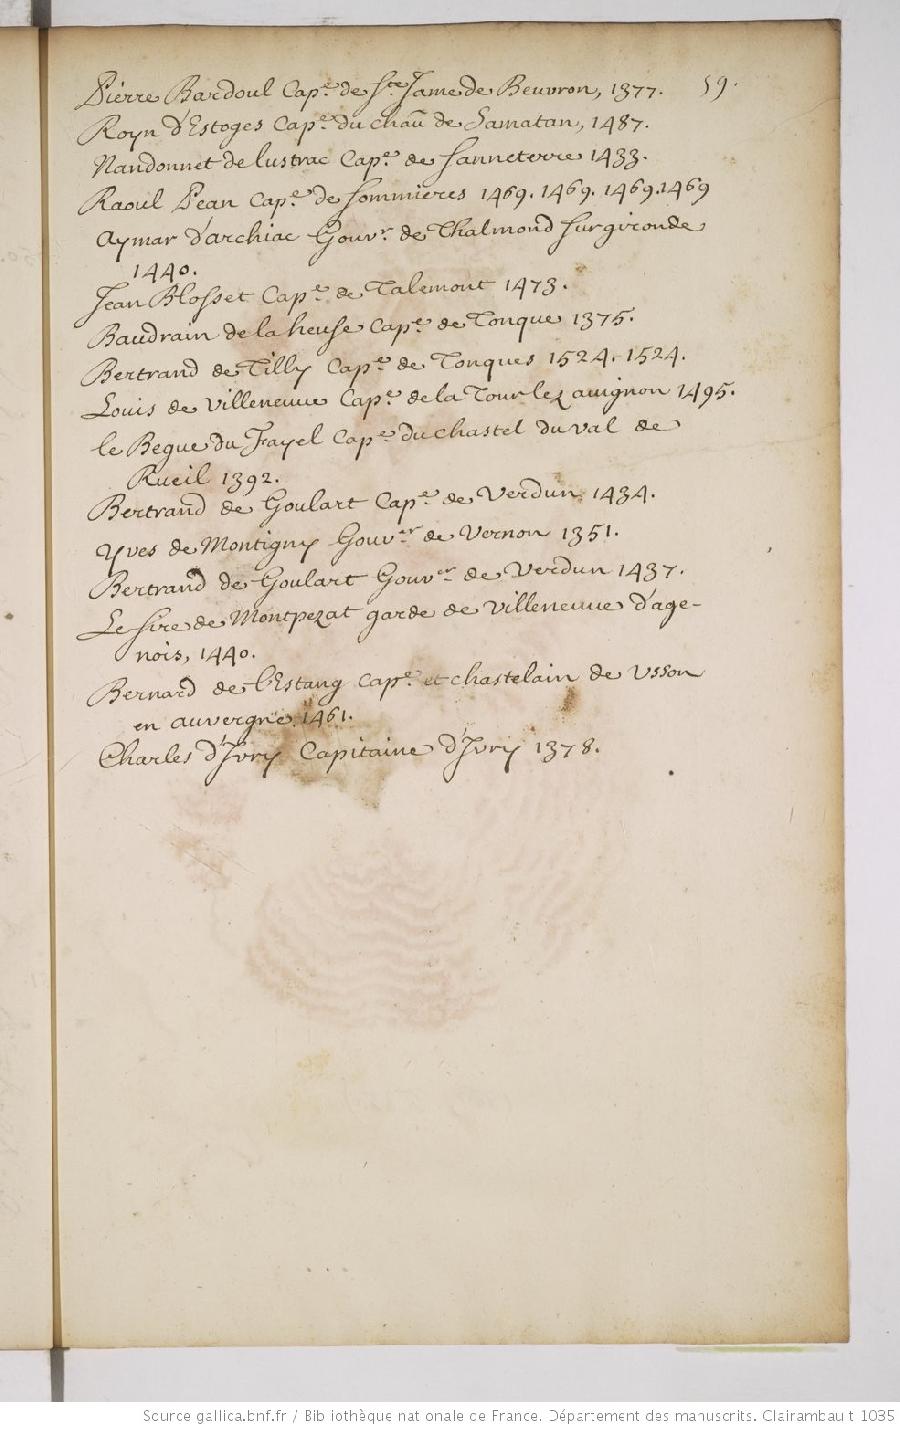 Pierre Bardoul Cap.e de Ste Jame de Beuvron, 1377. 59.
Royn d'Estoges Cap.e du chau de Samatan, 1487.
Nandonnet de lustrac Cap.e de sanneterre 1433.
Raoul Pean Cap.e de sommieres 1469. 1469. 1469. 1469
Aymar d'archiac Gouv.r de Thalmond sur gironde
1440.
Jean Blosset Cap.e de Talemont 1473.
Baudrain de la heuse Cap.e de Tonque 1375.
Bertrand de Tilly Cap.e de Tonques 1524. 1524.
Louis de villeneuve Cap.e de la Tour lez avignon 1495.
le Begue du Fayel Cap.e du chastel du val de
Rueil 1392.
Bertrand de Goulart Cap.e de Verdun 1434.
Yves de Montigny Gouv.er de Vernon 1351.
Bertrand de Goulart Gouv.er de Verdun 1437.
Le sire de Montpezat garde de villeneuve d'age-
nois, 1440.
Bernard de l'Estang Cap.e et chastelain de Usson
en auvergne 1461.
Charles d'Ivry Capitaine d'Ivry 1378.
Source gallica.bnf.fr / Bibliothèque nationale de France. Département des manuscrits. Clairambault 1035